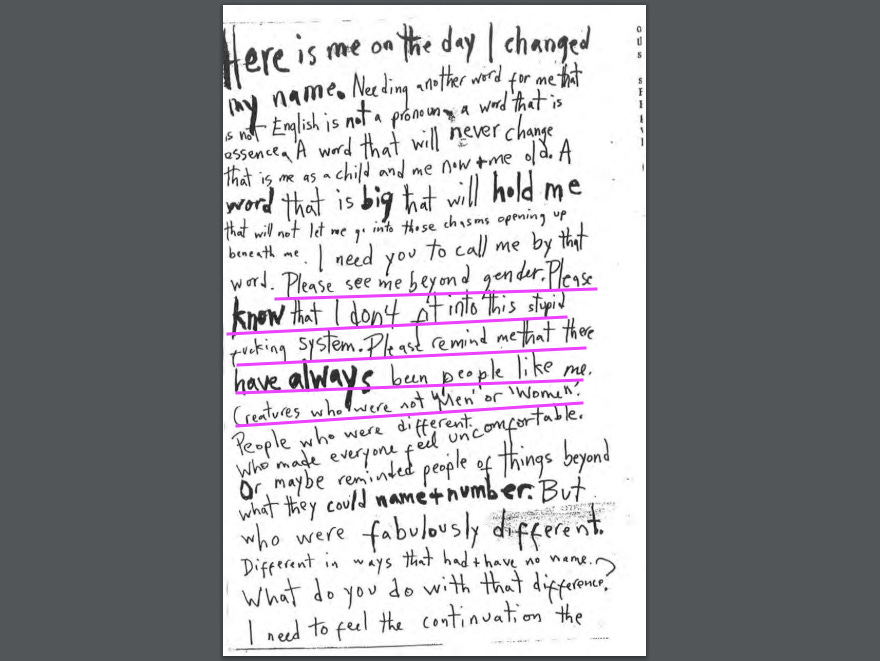 Here is me on the day I changed
my name. Needing another word for me that
is not English is not a pronoun, a word that is
essence. A word that will never change
that is me as a child and me now + me old. A
word that is big that will hold me
that will not let me go into those chasms opening up
beneath me. I need you to call me by that
word. Please see me beyond gender. Please
know that I don't fit into this stupid
fucking system. Please remind me that there
have always been people like me.
Creatures who were not 'Men' or 'Women'.
People who were different.
Who made everyone feel uncomfortable.
Or maybe reminded people of things beyond
what they could name + number. But
who were fabulously different.
Different in ways that had + have no name.
What do you do with that difference?
I need to feel the continuation the